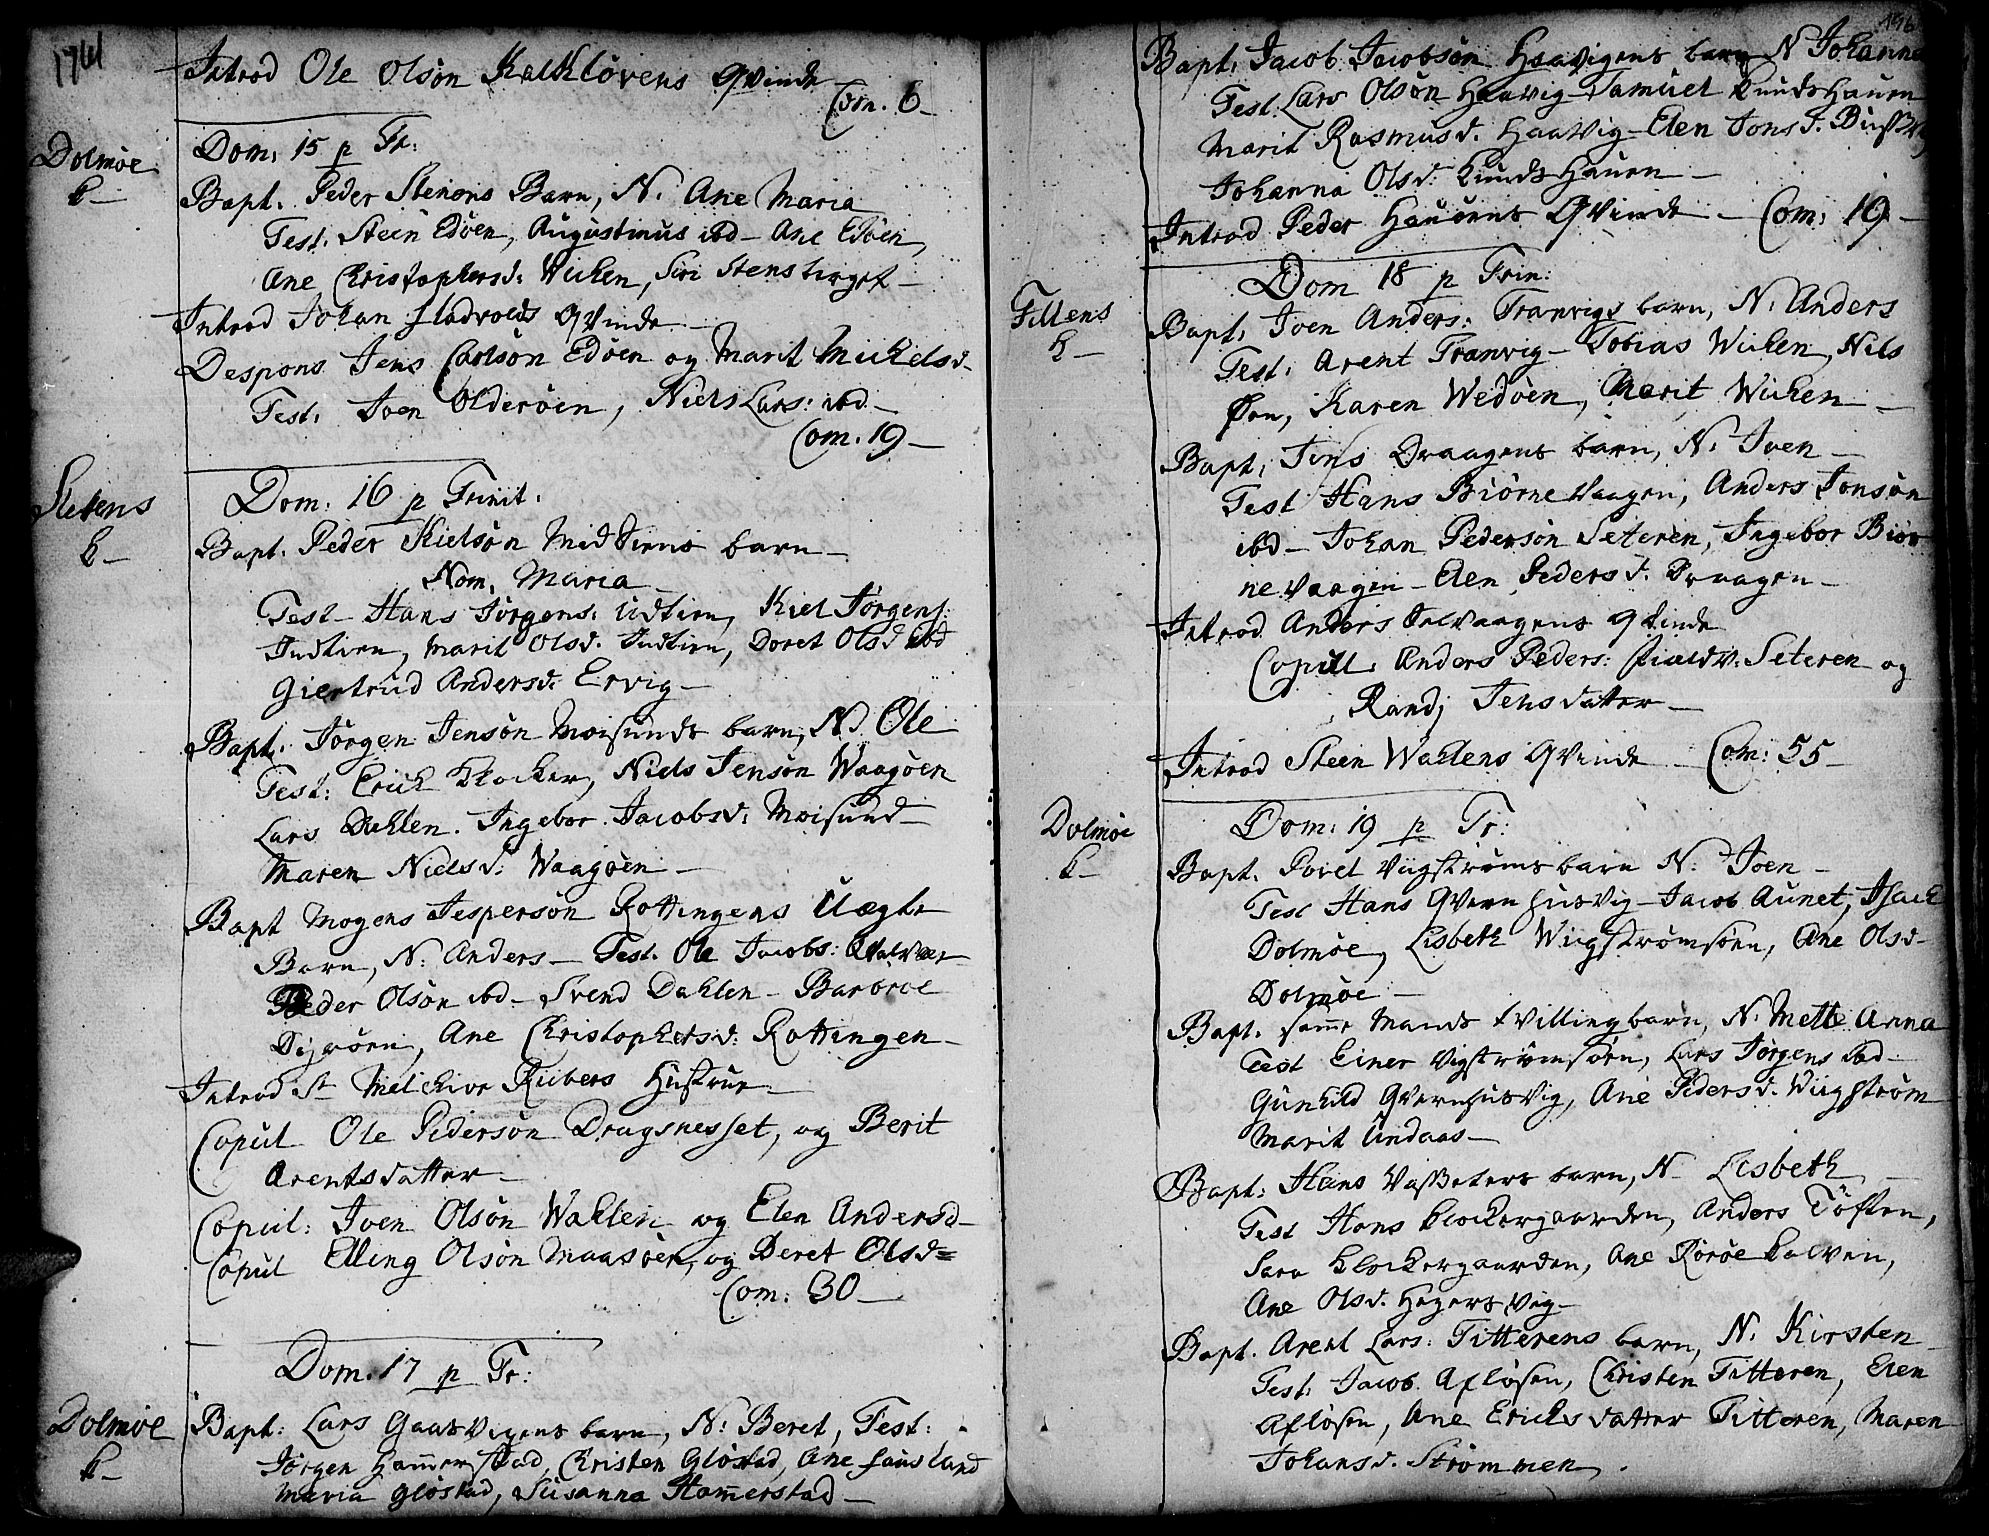 1761
Introd Ole Olsøn Kalkløvens qvinde
Com. 6
Dolmøe
k
Dom. 15 p Tr:
Bapt. Peder Stenøns Barn, N. Ane Maria
Test. Steen Edøen, Augustinus ibd - Ane Edøen,
Ane Christophersd: Wicken, Siri Stensberget
Introd Johan Hadvolds qvinde
Despons Jens Carlsøn Edøen og Marit Mickelsd.
Test. Joen Olderøien, Niels Lars: ibd
Com. 19
Sletens
k
Dom. 16 p Trinit.
Bapt. Peder Kielsøn Midtiens barn
Nom. Maria
Test Hans Jørgens: Udtien, Kiel Jørgens:
Indtien, Marit Olsd. Indtien, Doret Olsd ibd
Giertrud Andersd. Ervig
Bapt. Jørgen Jensøn Moisunds barn, N. Ole
Test: Erick Klocker, Niels Jensøn Waagøen
Lars Dahlen. Ingebor Jacobsd: Moisund
Maren Nielsd: Waagøen
Bapt Mogens Jespersøn Rottingens Uægte
Barn, N. Anders - Test. Ole Jacobs: Qvalvær
Peder Olsøn ibd - Svend Dahlen - Barbroe
Digørn, Ane Christophersd: Rottingen
Introd Sr Melchior Rubers Hustrue
Copul Ole Pedersøn Dragsnesset, og Berit
Arentsdatter
Copul: Joen Olsøn Wahlen og Elen Andersd
Copul Elling Olsøn Maasøen, og Beret Olsd
Com: 30
Dolmøe
k
Dom. 17 p Tr:
Bapt: Lars Gaasvigens barn, N: Beret, Test:
Jørgen Hammerstad, Christen Gløstad, Ane Hausland
Maria Gløstad, Susanna Hamerstad
Bapt. Jacob Jacobsøn Haavigens barn N Johanna
Test. Lars Olsøn Haavig Samuel Knudshauen
Marit Rasmusd. Haavig - Elen Jonsd.
Johanna Olsd. Knudshauen
Introd Peder Hauøens Qvinde Com: 19
Fillens
k
Dom 18 p Trin:
Bapt. Joen Anders: Tranvigs barn, N. Anders
Test. Arent Tranvig - Tobias Wicken, Nils
Øen, Karen Wedøen, Marit Wicken
Bapt. Jens Draagens barn, N. Joen
Test Hans Biørnevaagen, Anders Jonsøn
ibd - Johan Pedersøn Seteren, Ingebor Biør
nevaagen - Elen Pedersd. Draagen
Introd Anders Salvaagens qvinde
Copul: Anders Peders: Seteren og
Randj Jensdatter
Introd Steen Wahlens Qvinde Com: 55
Dolmøe
k
Dom: 19 p Tr:
Bapt. Povel Viigstrøms barn N: Joen
Test Hans Qvernhusvig - Jacob Aunet, Isack
Dolmøe, Lisbeth Wiigstrømsøen, Ane Olsd
Dolmøe
Bapt. samme Mands tvillingbarn, N. Mette Anna
Test Einer Vigstrømsøen, Lars Jørgens ibd
Gunhild Qvernhusvig, Ane Pedersd. Wiigstrøm
Marit Undaas
Bapt. Hans Vasseters barn, N. Lisbeth
Test Hans Klockergaarden, Anders Tøften,
Sara Klockergaarden, Ane Rørøe kalven,
Ane Olsd. Hegersvig
Bapt. Arent Lars: Titterens barn, N. Kirsten
Test. Jacob Afløsen, Christen Titteren, Elen
Afløsen, Ane Ericksdatter Titteren, Maren
Johansd. Strømmen.